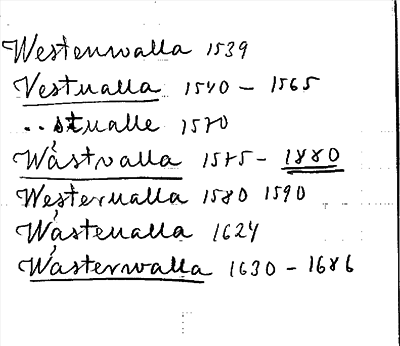 Westenwalla 1539
Vestualla 1540 - 1565
..stualle 1570
Wåstvalla 1575- 1880
Westerualla 1580 1590
Wåstenalla 1624
Wåsterwalla 1630 - 1686